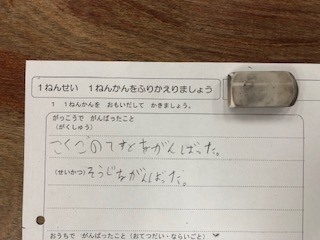 1ねんせい 1ねんかんをふりかえりましょう
1 1ねんかんを おもいだして かきましょう。
がっこうで がんばったこと
(がくしゅう)
こくごのてすとをがんばった。
(せいかつ) そうじをがんばった。
おうちで がんばったこと(おてつだい・ならいごと)